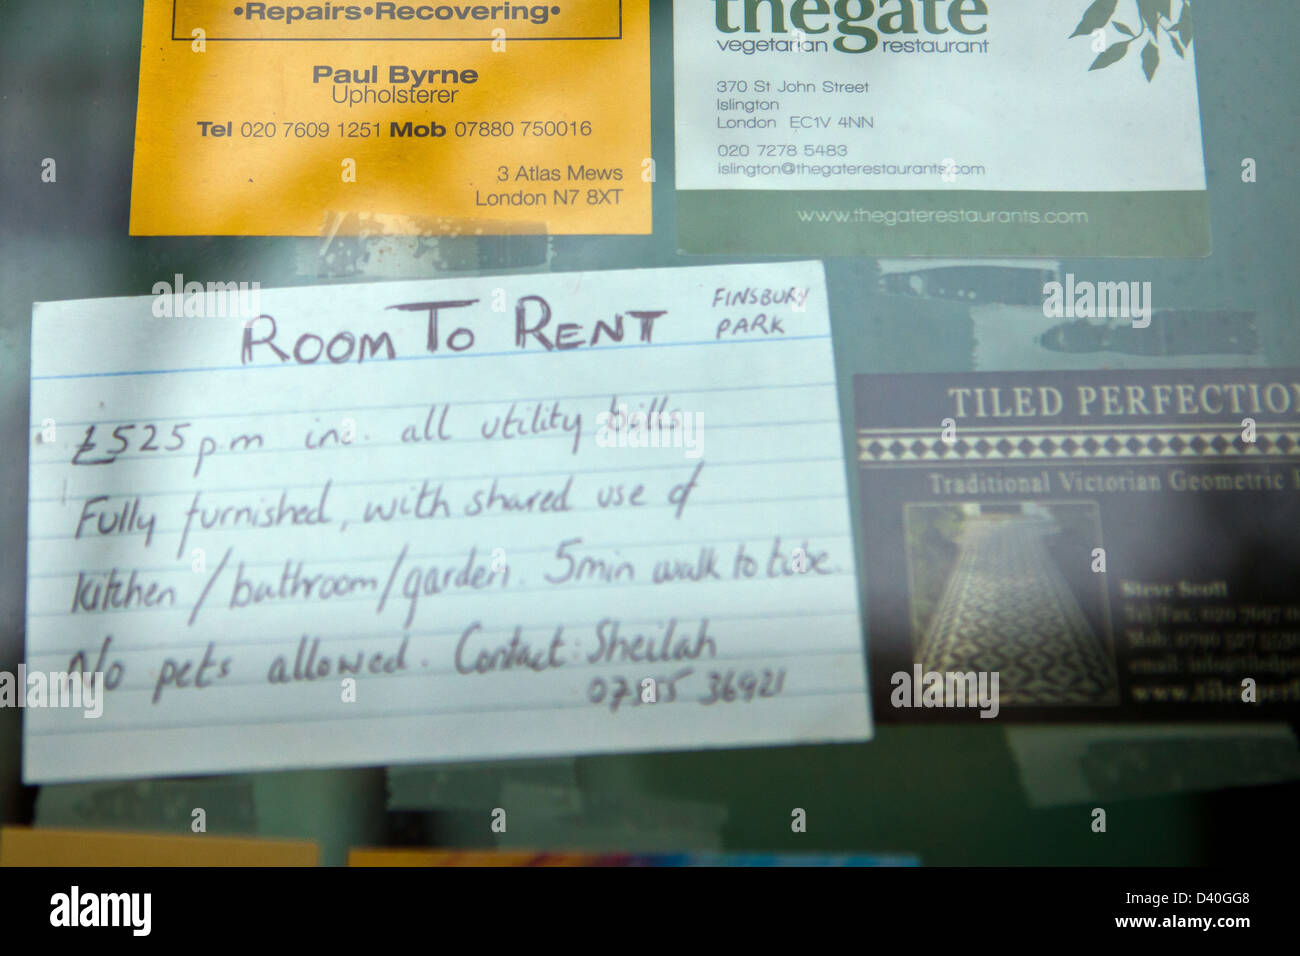 •Repairs•Recovering•
Paul Byrne
Upholsterer
Tel 020 7609 1251 Mob 07880 750016
3 Atlas Mews
London N7 8XT
thegate
vegetarian restaurant
370 St John Street
Islington
London EC1V 4NN
020 7278 5483
islington@thegaterestaurants.com
www.thegaterestaurants.com
ROOM TO RENT
FINSBURY
PARK
£525 p.m inc. all utility bills
Fully furnished, with shared use of
kitchen/bathroom/garden. 5min walk to tube.
No pets allowed. Contact: Sheilah
36921
TILED PERFECTION
Traditional Victorian Geometric
Steve Scott
Tel/Fax: 020 7607
Mob: 0790 527
email: info@tiled
www.tiled
a
alamy
alamy
Image ID: D40GG8
www.alamy.com